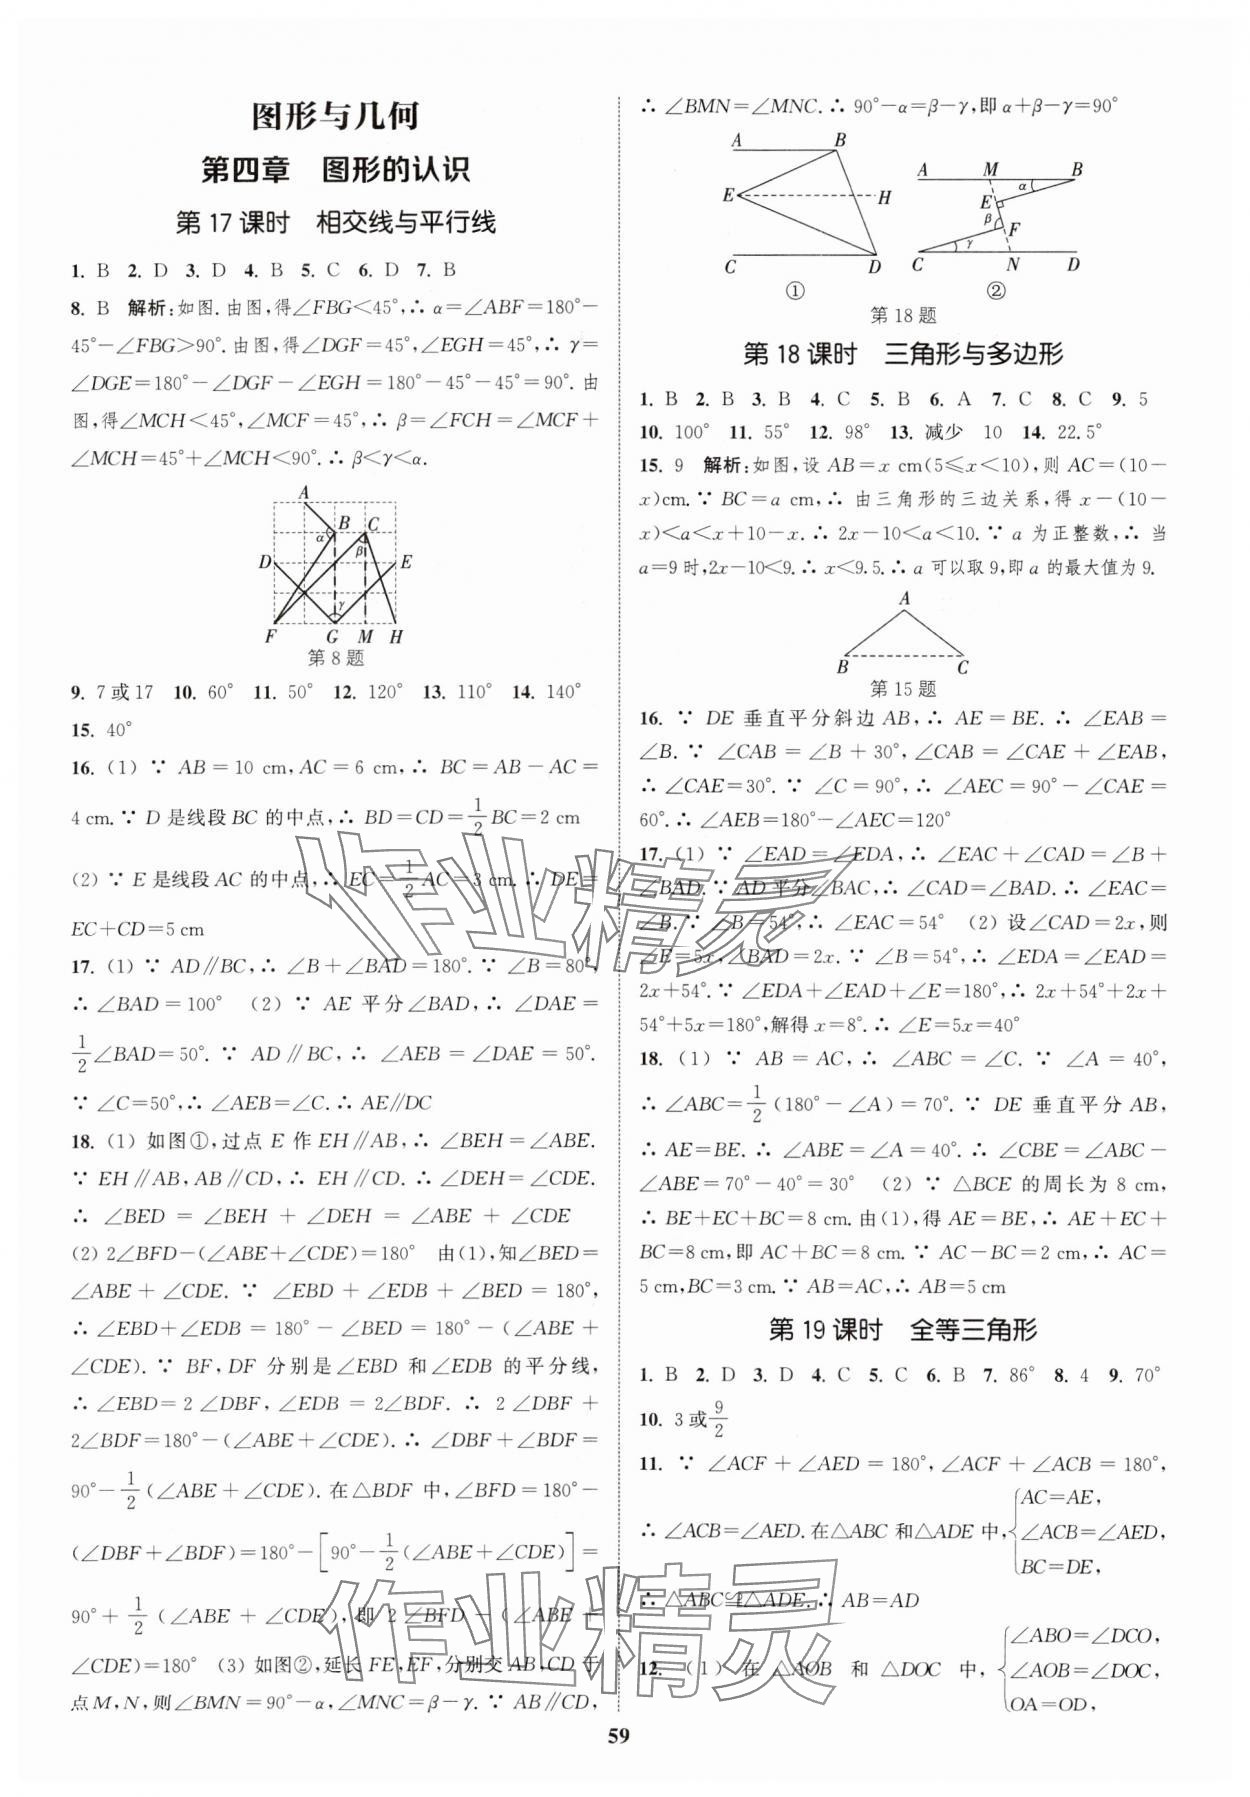 图形与几何
第四章　图形的认识
第 17 课时　相交线与平行线
1. B  2. D  3. D  4. B  5. C  6. D  7. B
8. B  解析:如图.由图,得∠FBG<45°,∴ α=∠ABF=180°-
45°-∠FBG>90°.由图,得∠DGF=45°,∠EGH=45°,∴ γ=
∠DGE=180°-∠DGF-∠EGH=180°-45°-45°=90°.由
图,得∠MCH<45°,∠MCF=45°,∴ β=∠FCH=∠MCF+
∠MCH=45°+∠MCH<90°.∴ β<γ<α.
A
B C
α β
D E
γ
F G M H
第 8 题
9. 7 或 17  10. 60°  11. 50°  12. 120°  13. 110°  14. 140°
15. 40°
16. (1) ∵ AB=10 cm,AC=6 cm,∴ BC=AB-AC=
4 cm.∵ D 是线段 BC 的中点,∴ BD=CD=1/2BC=2 cm
(2) ∵ E 是线段 AC 的中点,∴ EC=1/2AC=3 cm.∴ DE=
EC+CD=5 cm
17. (1) ∵ AD∥BC,∴ ∠B+∠BAD=180°.∵ ∠B=80°,
∴ ∠BAD=100°  (2) ∵ AE 平分∠BAD,∴ ∠DAE=
1/2∠BAD=50°.∵ AD∥BC,∴ ∠AEB=∠DAE=50°.
∵ ∠C=50°,∴ ∠AEB=∠C.∴ AE∥DC
18. (1) 如图①,过点 E 作 EH∥AB,∴ ∠BEH=∠ABE.
∵ EH∥AB,AB∥CD,∴ EH∥CD.∴ ∠DEH=∠CDE.
∴ ∠BED = ∠BEH + ∠DEH = ∠ABE + ∠CDE
(2) 2∠BFD-(∠ABE+∠CDE)=180°  由(1),知∠BED=
∠ABE+∠CDE.∵ ∠EBD+∠EDB+∠BED=180°,
∴ ∠EBD+∠EDB=180°-∠BED=180°-(∠ABE+
∠CDE).∵ BF,DF 分别是∠EBD 和∠EDB 的平分线,
∴ ∠EBD=2∠DBF,∠EDB=2∠BDF.∴ 2∠DBF+
2∠BDF=180°-(∠ABE+∠CDE).∴ ∠DBF+∠BDF=
90°-1/2(∠ABE+∠CDE).在△BDF 中,∠BFD=180°-
(∠DBF+∠BDF)=180°-[90°-1/2(∠ABE+∠CDE)]=
90°+1/2(∠ABE+∠CDE),即 2∠BFD-(∠ABE+
∠CDE)=180°  (3) 如图②,延长 FE,EF,分别交 AB,CD 于
点 M,N,则∠BMN=90°-α,∠MNC=β-γ.∵ AB∥CD,
∴ ∠BMN=∠MNC.∴ 90°-α=β-γ,即 α+β-γ=90°
A B
E H
C D
①
A M B
α
E
β F
γ
C N D
②
第 18 题
第 18 课时　三角形与多边形
1. B  2. B  3. B  4. C  5. B  6. A  7. C  8. C  9. 5
10. 100°  11. 55°  12. 98°  13. 减少  10  14. 22.5°
15. 9  解析:如图,设 AB=x cm(5≤x<10),则 AC=(10-
x)cm.∵ BC=a cm,∴ 由三角形的三边关系,得 x-(10-
x)<a<x+10-x.∴ 2x-10<a<10.∵ a 为正整数,∴ 当
a=9 时,2x-10<9.∴ x<9.5.∴ a 可以取 9,即 a 的最大值为 9.
A
B C
第 15 题
16. ∵ DE 垂直平分斜边 AB,∴ AE=BE.∴ ∠EAB=
∠B.∵ ∠CAB=∠B+30°,∠CAB=∠CAE+∠EAB,
∴ ∠CAE=30°.∵ ∠C=90°,∴ ∠AEC=90°-∠CAE=
60°.∴ ∠AEB=180°-∠AEC=120°
17. (1) ∵ ∠EAD=∠EDA,∴ ∠EAC+∠CAD=∠B+
∠BAD.∵ AD 平分∠BAC,∴ ∠CAD=∠BAD.∴ ∠EAC=
∠B.∵ ∠B=54°,∴ ∠EAC=54°  (2) 设∠CAD=2x,则
∠E=5x,∠BAD=2x.∵ ∠B=54°,∴ ∠EDA=∠EAD=
2x+54°.∵ ∠EDA+∠EAD+∠E=180°,∴ 2x+54°+2x+
54°+5x=180°,解得 x=8°.∴ ∠E=5x=40°
18. (1) ∵ AB=AC,∴ ∠ABC=∠C.∵ ∠A=40°,
∴ ∠ABC=1/2(180°-∠A)=70°.∵ DE 垂直平分 AB,
∴ AE=BE.∴ ∠ABE=∠A=40°.∴ ∠CBE=∠ABC-
∠ABE=70°-40°=30°  (2) ∵ △BCE 的周长为 8 cm,
∴ BE+EC+BC=8 cm.由(1),得 AE=BE,∴ AE+EC+
BC=8 cm,即 AC+BC=8 cm.∵ AC-BC=2 cm,∴ AC=
5 cm,BC=3 cm.∵ AB=AC,∴ AB=5 cm
第 19 课时　全等三角形
1. B  2. D  3. D  4. C  5. C  6. B  7. 86°  8. 4  9. 70°
10. 3 或 9/2
11. ∵ ∠ACF+∠AED=180°,∠ACF+∠ACB=180°,
∴ ∠ACB=∠AED.在△ABC 和△ADE 中,{AC=AE, ∠ACB=∠AED, BC=DE,
∴ △ABC≌△ADE.∴ AB=AD
12. (1) 在 △AOB 和 △DOC 中,{∠ABO=∠DCO, ∠AOB=∠DOC, OA=OD,
59
作业精灵
作业精灵